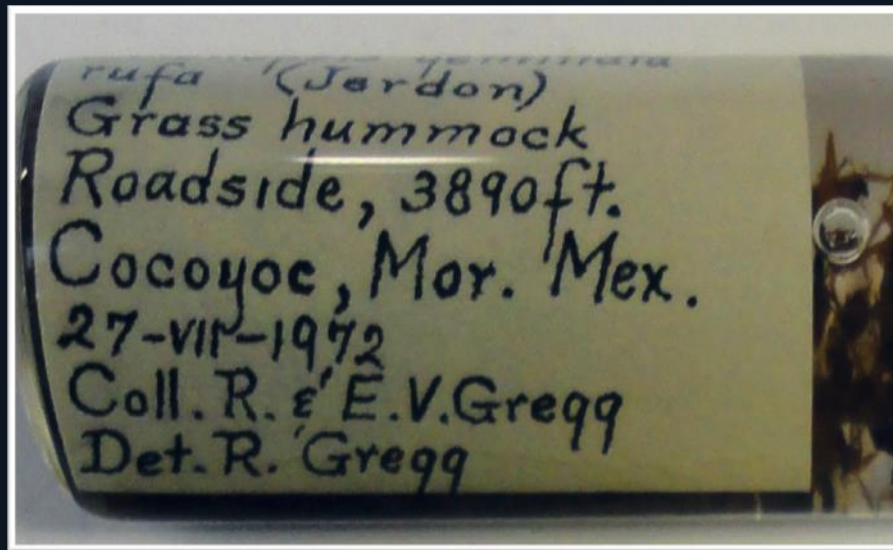 geminata
rufa (Jerdon)
Grass hummock
Roadside, 3890ft.
Cocoyoc, Mor. Mex.
27-VII-1972
Coll. R. & E.V.Gregg
Det. R. Gregg